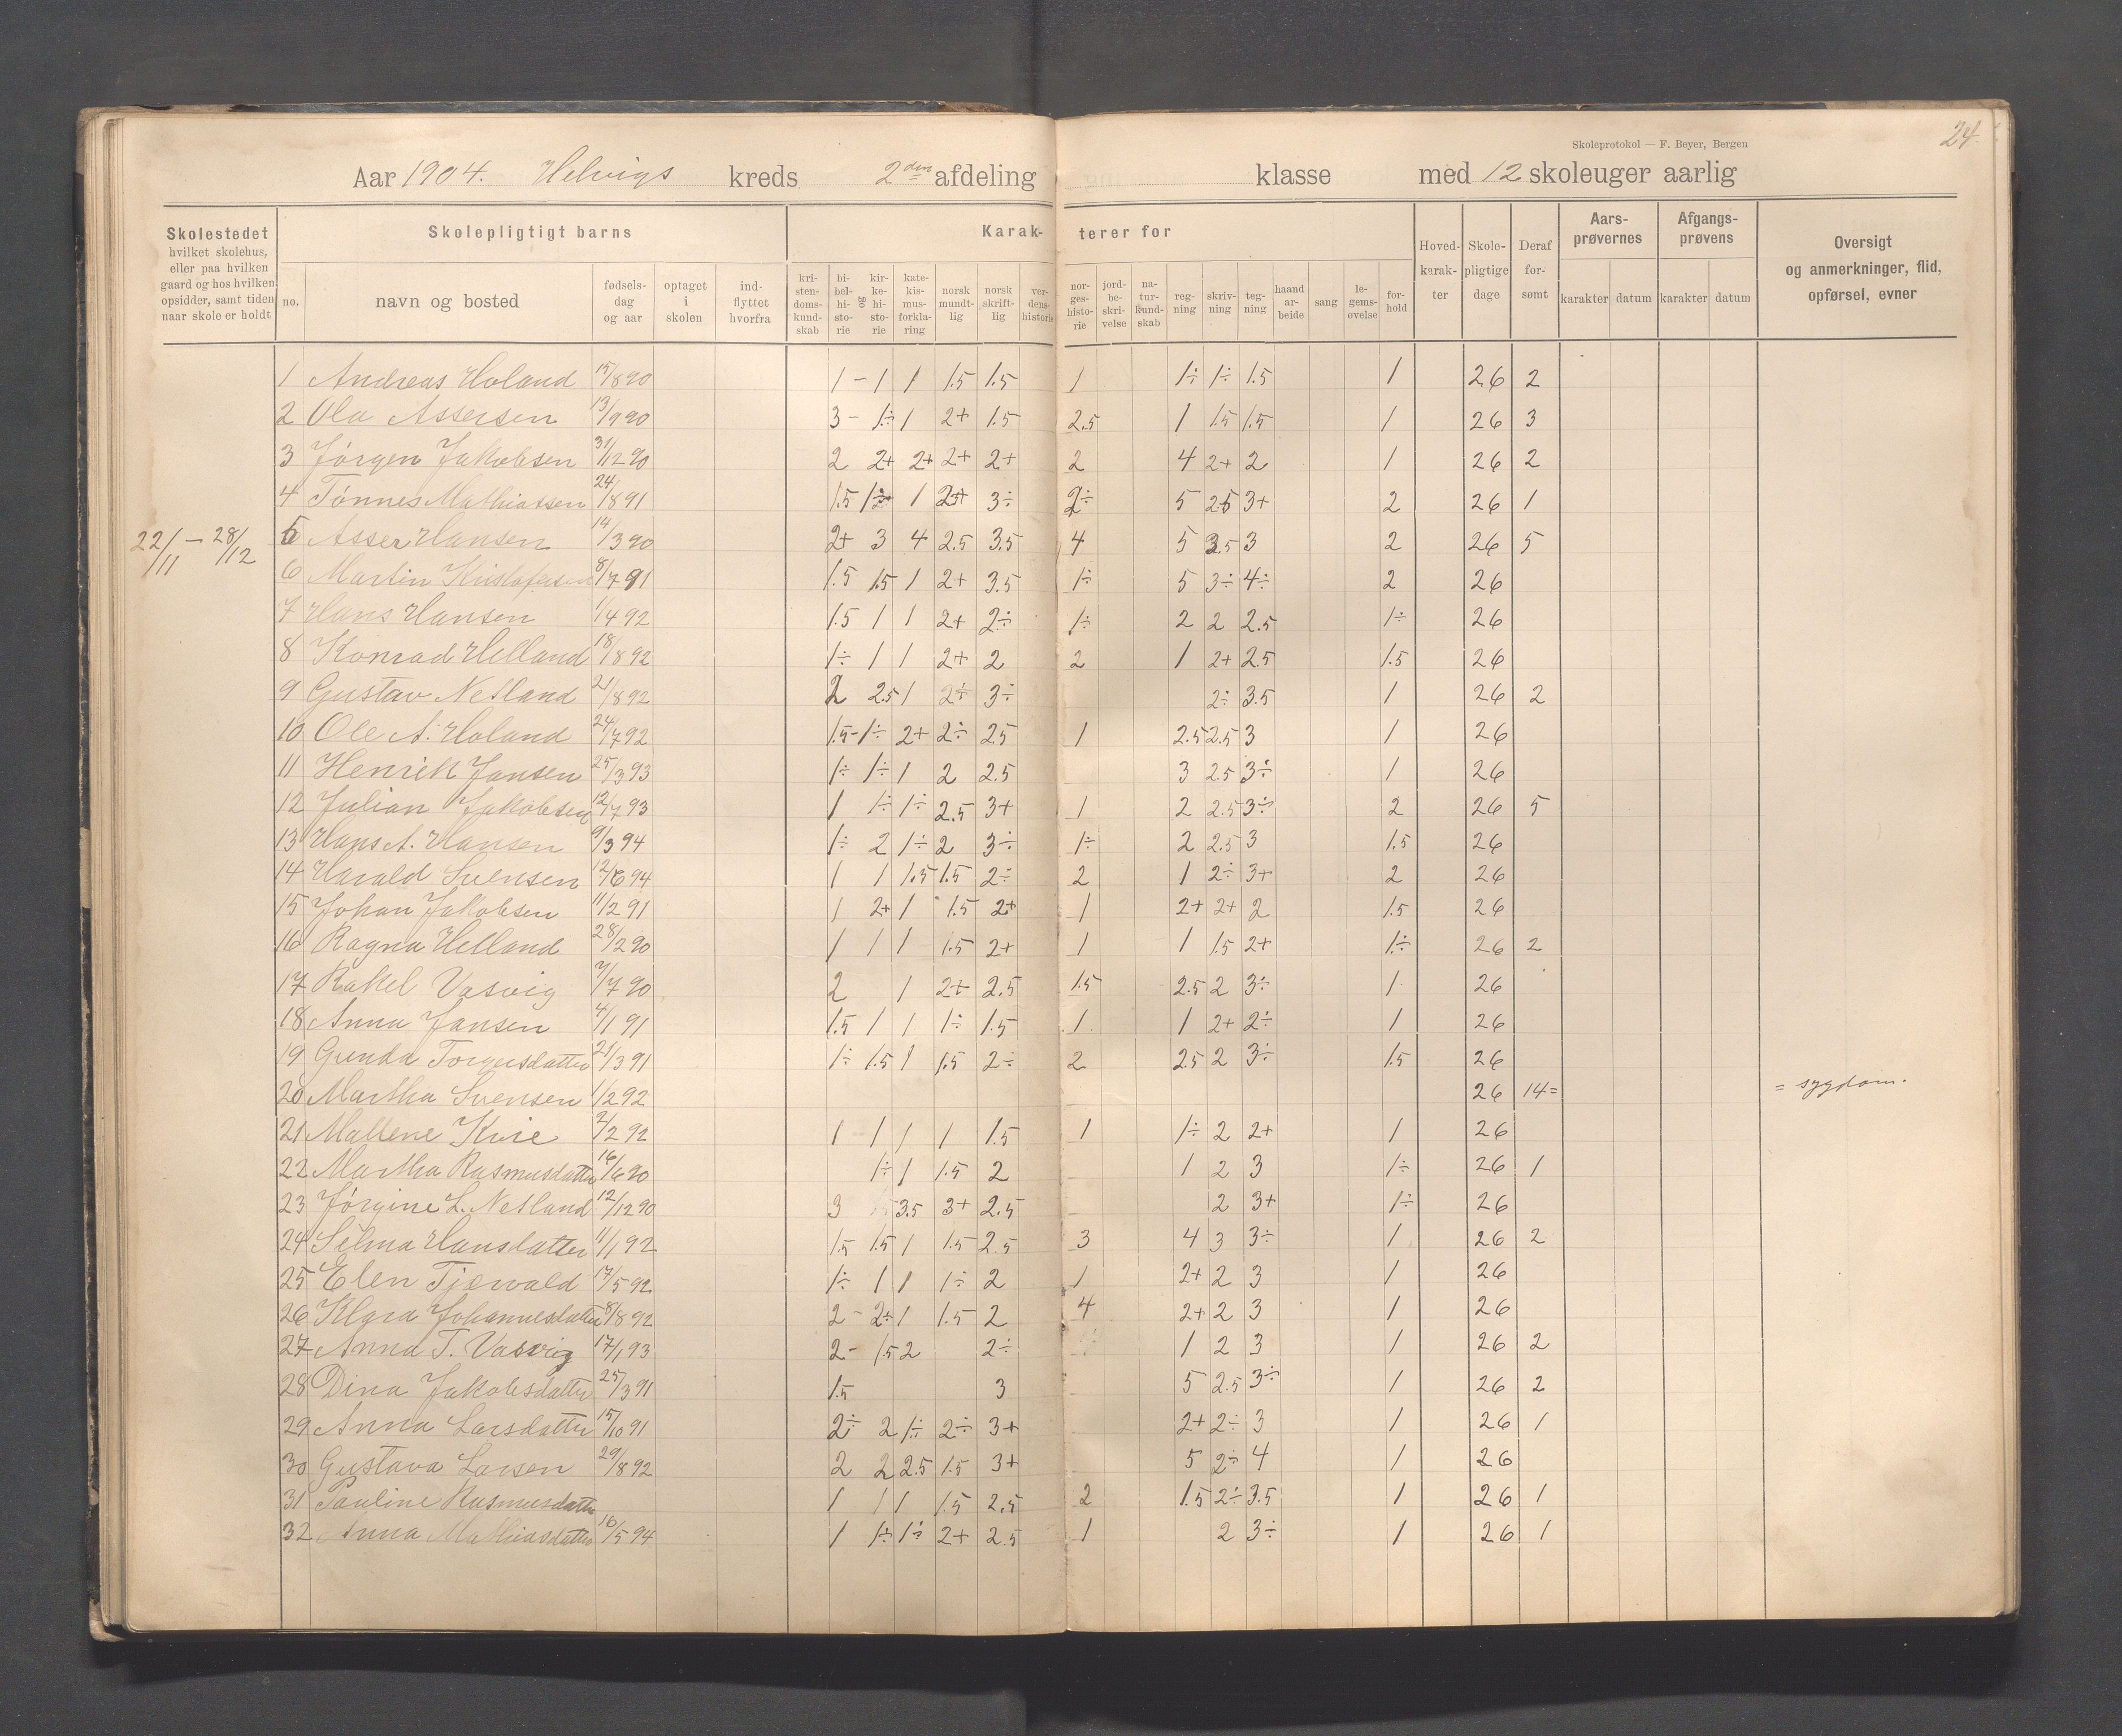 24
Skoleprotokol — F. Beyer, Bergen
Aar 1904. Helvigs kreds 2den afdeling klasse med 12 skoleuger aarlig
Skolestedet hvilket skolehus, eller paa hvilken gaard og hos hvilken opsidder, samt tiden naar skole er holdt
Skolepligtigt barns
Karakterer for
no. navn og bosted fødselsdag og aar optaget i skolen indflyttet hvorfra
kristendomskundskab bibelhistorie og kirkehistorie katekismusforklaring norsk mundtlig norsk skriftlig verdenshistorie
norgeshistorie jordbeskrivelse naturkundskab regning skrivning tegning haandarbeide sang legemsøvelse forhold
Hovedkarakter Skolepligtige dage Deraf forsømt
Aarsprøvernes karakter datum
Afgangsprøvens karakter datum
Oversigt og anmerkninger, flid, opførsel, evner
22/11 — 28/12
1 Andreas Holand 15/8 90 1 - 1 1 1.5 1.5 1 1÷ 1÷ 1.5 1 26 2
2 Ola Assersen 13/9 90 3 - 1÷ 1 2+ 1.5 2.5 1 1.5 1.5 1 26 3
3 Jørgen Jakobsen 31/12 90 2 2+ 2+ 2+ 2+ 2 4 2+ 2 1 26 2
4 Tønnes Mathiassen 24/8 91 1.5 1÷ 1 2+ 3÷ 2÷ 5 2.5 3+ 2 26 1
5 Asser Hansen 14/3 90 2+ 3 4 2.5 3.5 4 5 3.5 3 2 26 5
6 Martin Kristofersen 8/7 91 1.5 1.5 1 2+ 3.5 1÷ 5 3÷ 4÷ 2 26
7 Hans Hansen 1/4 92 1.5 1 1 2+ 2÷ 1÷ 2 2 2.5 1÷ 26
8 Konrad Helland 18/8 92 1÷ 1 1 2+ 2 2 1 2+ 2.5 1.5 26
9 Gustav Nesland 21/8 92 2 2.5 1 2÷ 3÷ 2÷ 3.5 1 26 2
10 Ole A. Holand 24/7 92 1.5 - 1÷ 2+ 2÷ 2.5 1 2.5 2.5 3 1 26
11 Henrik Jansen 25/3 93 1÷ 1÷ 1 2 2.5 3 2.5 3÷ 1 26
12 Julian Jakobsen 12/7 93 1 1÷ 1÷ 2.5 3+ 1 2 2.5 3÷ 2 26 5
13 Hans A. Hansen 9/3 94 1÷ 2 1÷ 2 3÷ 1÷ 2 2.5 3 1.5 26
14 Harald Svensen 12/6 94 1 1 1.5 1.5 2÷ 2 1 2÷ 3+ 2 26
15 Johan Jakobsen 11/2 91 1 2+ 1 1.5 2+ 1 2+ 2+ 2 1.5 26
16 Ragna Helland 28/2 90 1 1 1 1.5 2+ 1 1 1.5 2+ 1÷ 26 2
17 Rakel Vasvig 7/7 90 2 1 2+ 2.5 1.5 2.5 2 3÷ 1 26
18 Anna Jansen 4/1 91 1.5 1 1 1÷ 1.5 1 1 2+ 2÷ 1 26
19 Gunda Torgersdatter 21/3 91 1÷ 1.5 1 1.5 2÷ 2 2.5 2 3÷ 1.5 26
20 Martha Svensen 1/2 92 26 14= = sygdom.
21 Mallene Kvie 2/2 92 1 1 1 1 1.5 1 1÷ 2 2+ 1 26
22 Martha Rasmusdatter 16/6 90 1÷ 1 1.5 2 1 2 3 1÷ 26 1
23 Jørgine L. Nesland 12/12 90 3 3.5 3+ 2.5 2 3+ 1÷ 26
24 Selma Hansdatter 11/1 92 1.5 1.5 1 1.5 2.5 3 4 3 3÷ 1 26 2
25 Elen Tjewald 17/5 92 1÷ 1 1 1÷ 2 1 2+ 2 3 1 26
26 Klara Johannesdatter 8/8 92 2 - 2÷ 1 1.5 2 4 2+ 2 3 1 26
27 Anna T. Vasvig 17/1 93 2 - 1.5 2 2÷ 1 2 3 1 26 2
28 Dina Jakobsdatter 25/3 91 1.5 3 5 2.5 3÷ 1 26 2
29 Anna Larsdatter 15/10 91 2÷ 2 1÷ 2÷ 3+ 2+ 2÷ 3 1 26 1
30 Gustava Larsen 29/8 92 2 2 2.5 1.5 3+ 5 2÷ 4 1 26
31 Pauline Rasmusdatter 1 1 1 1.5 2.5 2 1.5 2÷ 3.5 1 26 1
32 Anna Mathiasdatter 16/5 94 1 1÷ 1÷ 2+ 2.5 1 2 3÷ 1 26 1